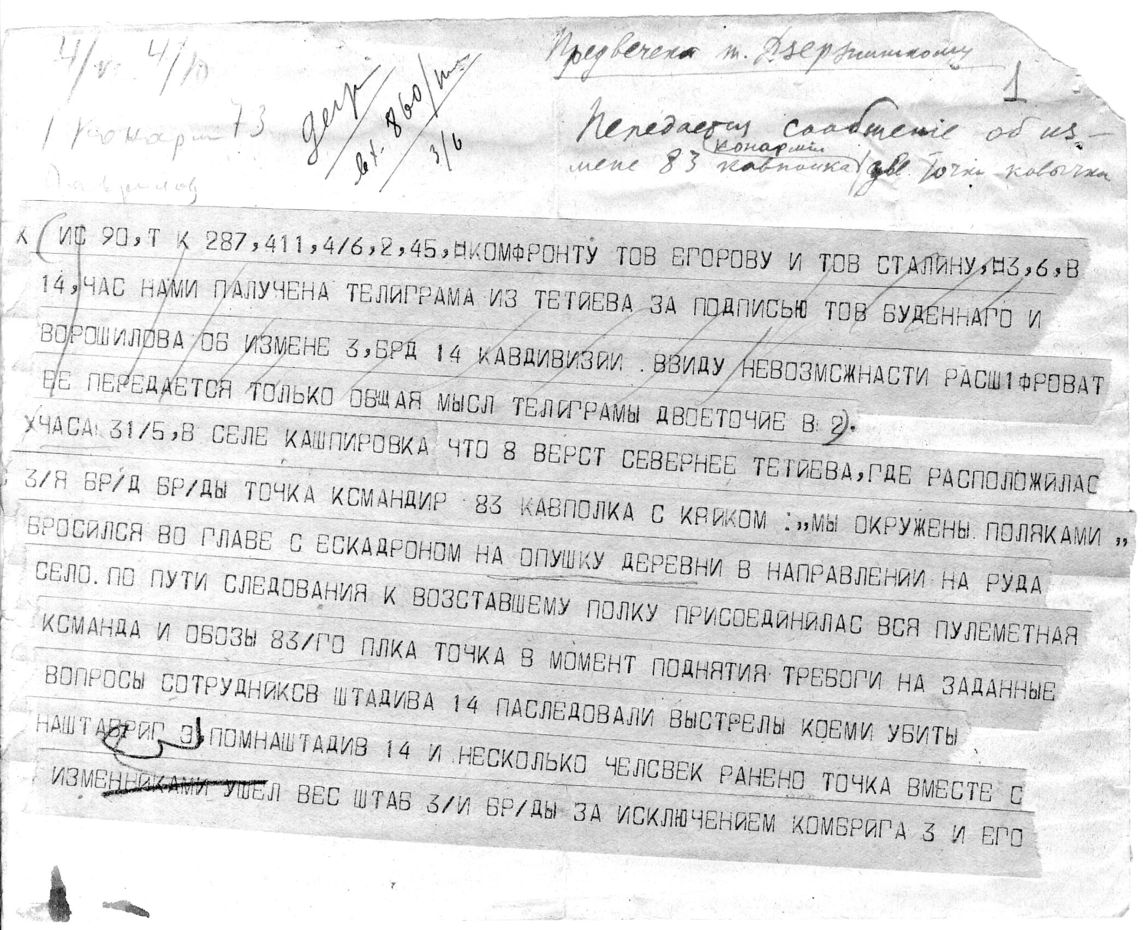 Предвечека т. Дзержинскому
4/VI 4/VI
1
1 Конарм 73
вх. 860/
3/6
Передается сообщение об из-
мене 83 кавполка (конармии) две точки кавычки
К (ИС 90,Т К 287,411,4/6,2,45,¤КОМФРОНТУ ТОВ ЕГОРОВУ И ТОВ СТАЛИНУ,¤3,6,В
14,ЧАС НАМИ ПАЛУЧЕНА ТЕЛИГРАМА ИЗ ТЕТИЕВА ЗА ПОДПИСЬЮ ТОВ БУДЕННАГО И
ВОРОШИЛОВА ОБ ИЗМЕНЕ 3,БРД 14 КАВДИВИЗИИ . ВВИДУ НЕВОЗМСЖНАСТИ РАСШ1ФРОВАТ
ЕЕ ПЕРЕДАЕТСЯ ТОЛЬКО ОБЩАЯ МЫСЛ ТЕЛИГРАМЫ ДВОЕТОЧИЕ В 2).
ХЧАСА 31/5,В СЕЛЕ КАШПИРОВКА ЧТО 8 ВЕРСТ СЕВЕРНЕЕ ТЕТИЕВА,ГДЕ РАСПОЛОЖИЛАС
3/Я БР/Д БР/ДЫ ТОЧКА КСМАНДИР 83 КАВПОЛКА С КРИКОМ :„МЫ ОКРУЖЕНЫ ПОЛЯКАМИ „
БРОСИЛСЯ ВО ГЛАВЕ С ЕСКАДРОНОМ НА ОПУШКУ ДЕРЕВНИ В НАПРАВЛЕНИИ НА РУДА
СЕЛО.ПО ПУТИ СЛЕДОВАНИЯ К ВОЗСТАВШЕМУ ПОЛКУ ПРИСОЕДИНИЛАС ВСЯ ПУЛЕМЕТНАЯ
КСМАНДА И ОБОЗЫ 83/ГО ПЛКА ТОЧКА В МОМЕНТ ПОДНЯТИЯ ТРЕБОГИ НА ЗАДАННЫЕ
ВОПРОСЫ СОТРУДНИКСВ ШТАДИВА 14 ПАСЛЕДОВАЛИ ВЫСТРЕЛЫ КОЕМИ УБИТЫ
НАШТАБРИГ 3 ПОМНАШТАДИВ 14 И НЕСКОЛЬКО ЧЕЛСВЕК РАНЕНО ТОЧКА ВМЕСТЕ С
ИЗМЕННИКАМИ УШЕЛ ВЕС ШТАБ 3/И БР/ДЫ ЗА ИСКЛЮЧЕНИЕМ КОМБРИГА 3 И ЕГО